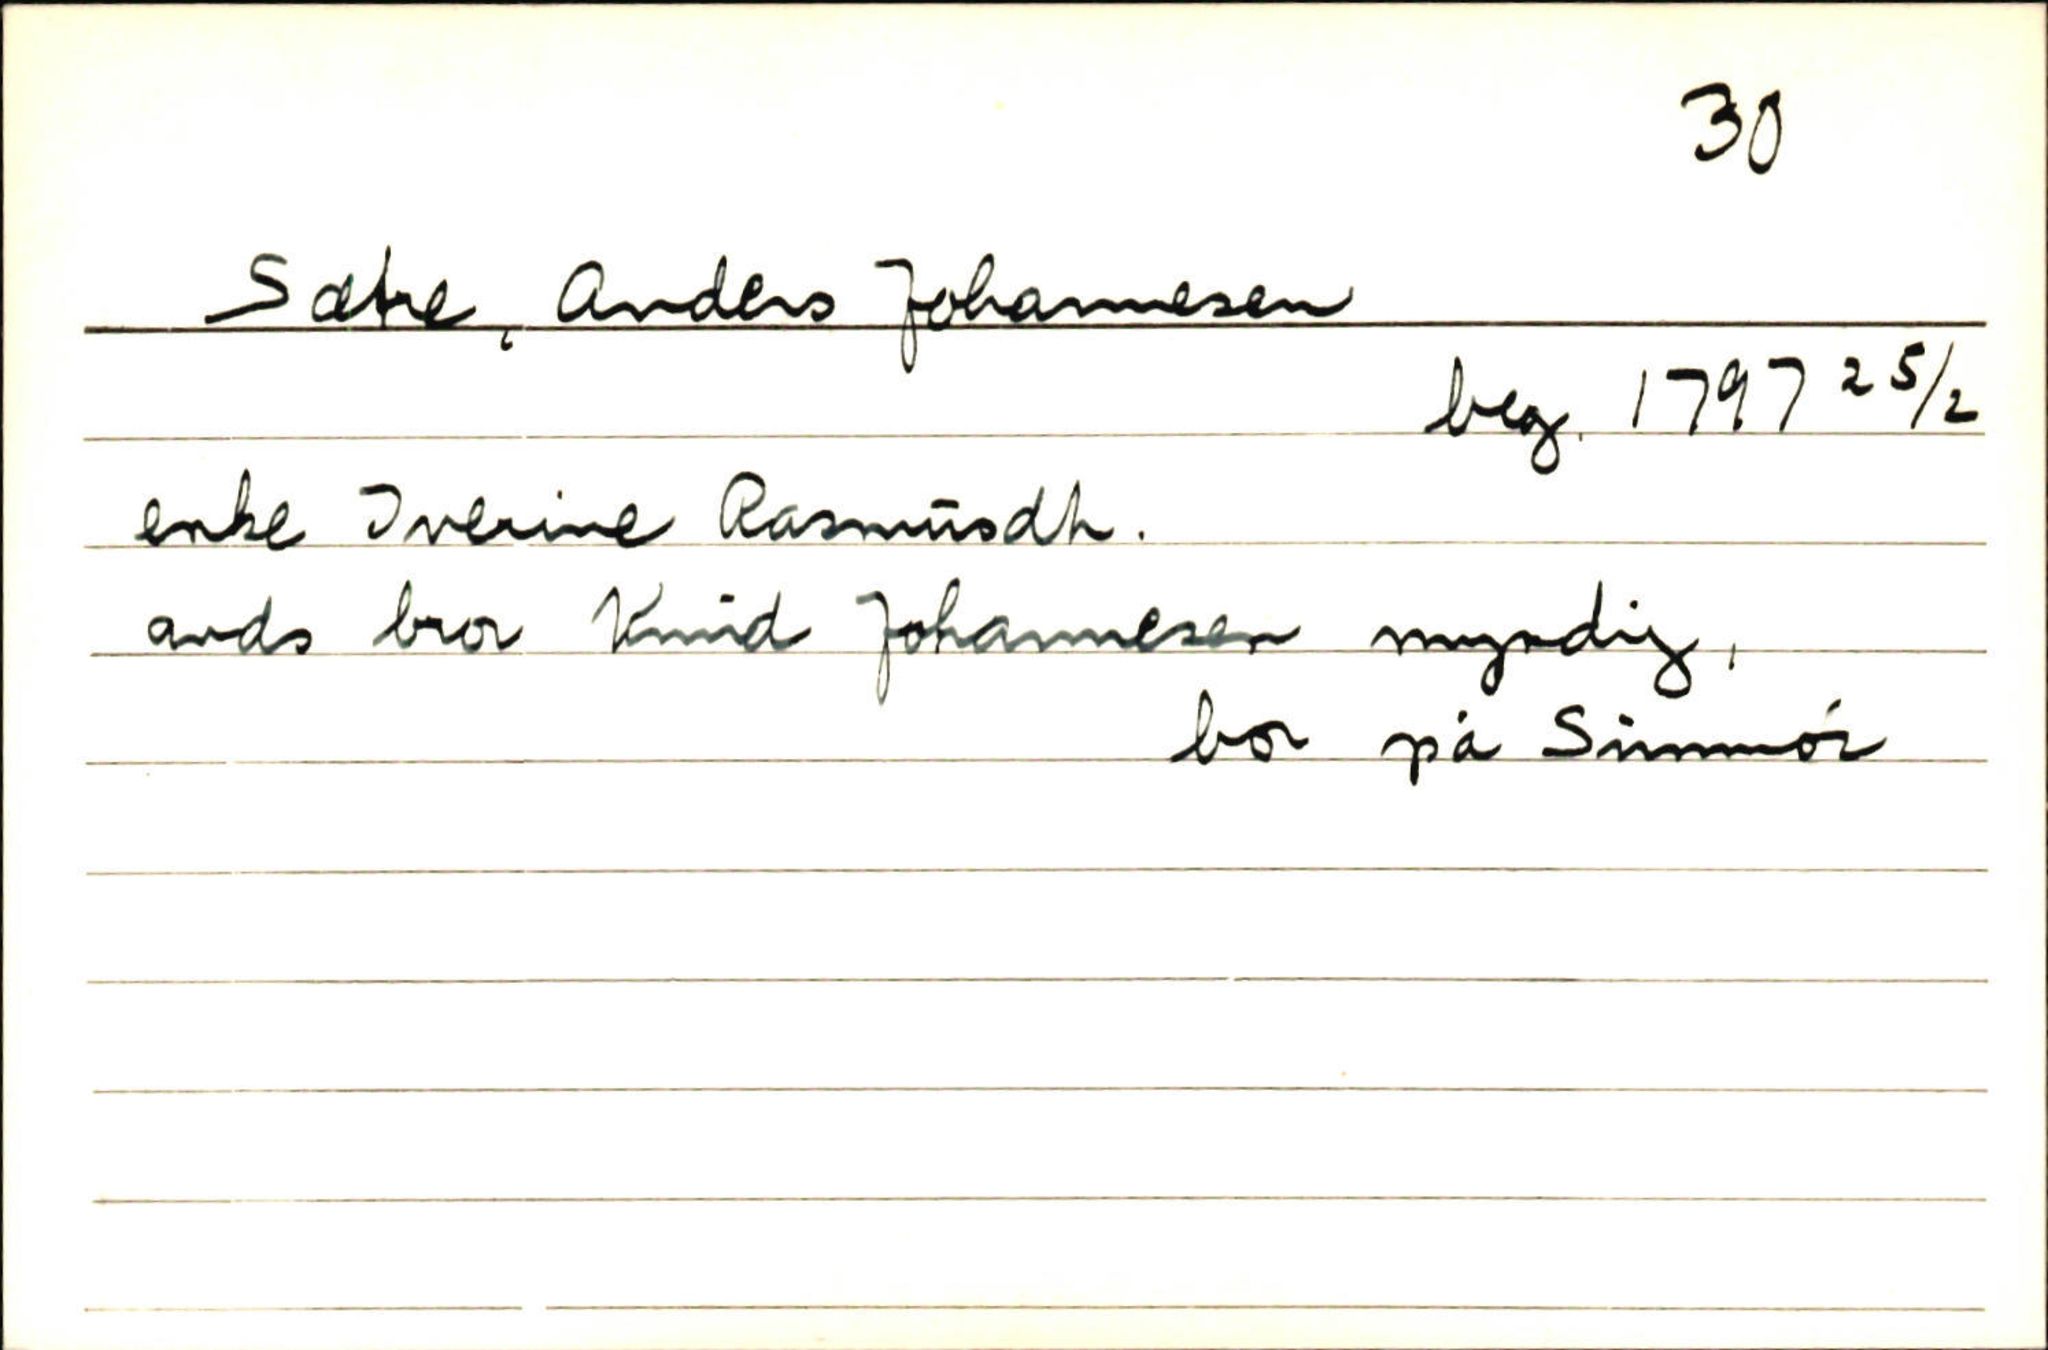 30
Sætre, Anders Johannesen
beg. 1797 25/2
enke Iverine Rasmusdh.
avds bror Knud Johannesen myndig,
bor på Sunmør